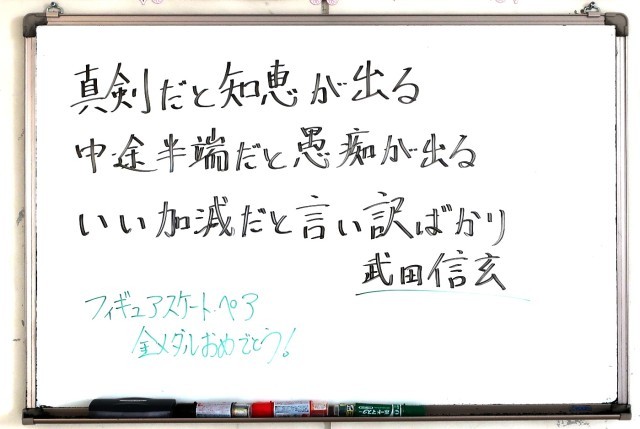 真剣だと知恵が出る
中途半端だと愚痴が出る
いい加減だと言い訳ばかり
武田信玄
フィギュアスケート・ペア
金メダルおめでとう!
ボードマスター